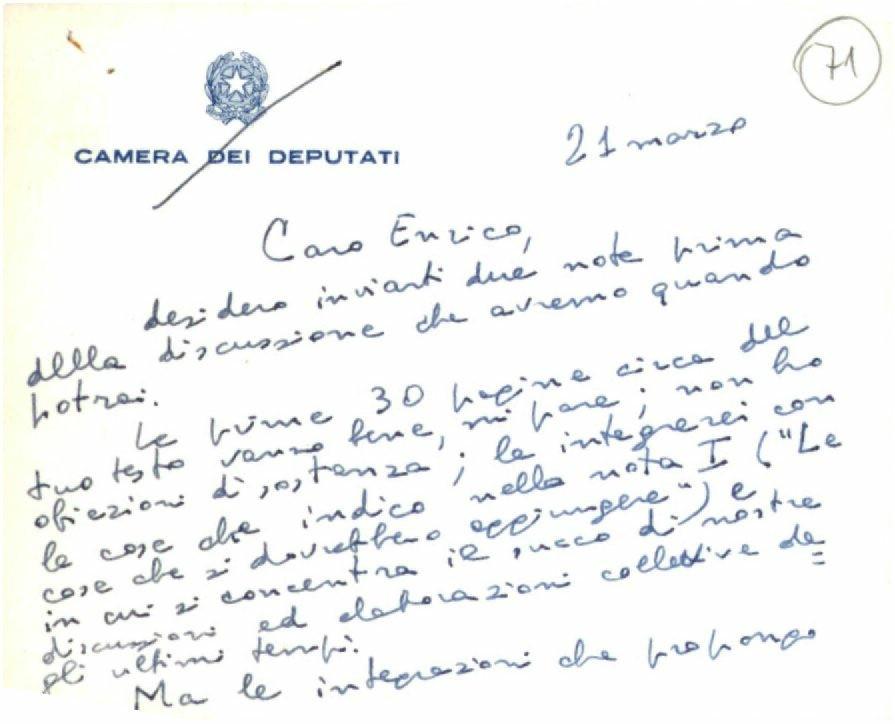 71
CAMERA DEI DEPUTATI
21 marzo
Caro Enrico,
desidero inviarti due note prima
della discussione che avremo quando
potrai.
Le prime 30 pagine circa del
tuo testo vanno bene, mi pare; non ho
obiezioni di sostanza; le integrerei con
le cose che indico nella nota I ("Le
cose che si dovrebbero aggiungere") e
in cui si concentra il succo di nostre
discussioni ed elaborazioni collettive de=
gli ultimi tempi.
Ma le integrazioni che propongo